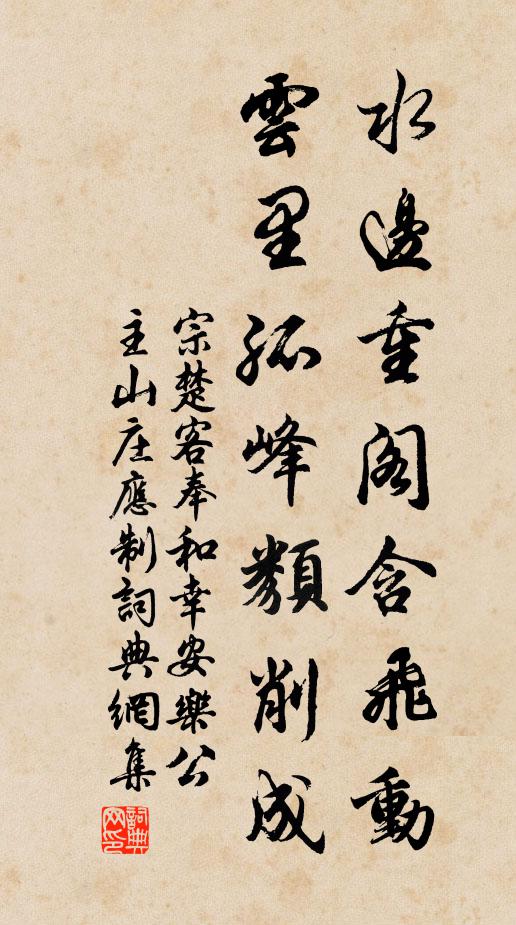 水邊重閣含飛動
雲里孤峰類削成
宗楚客奉和幸安樂公
主山庄應制詞典網集
詞典网印